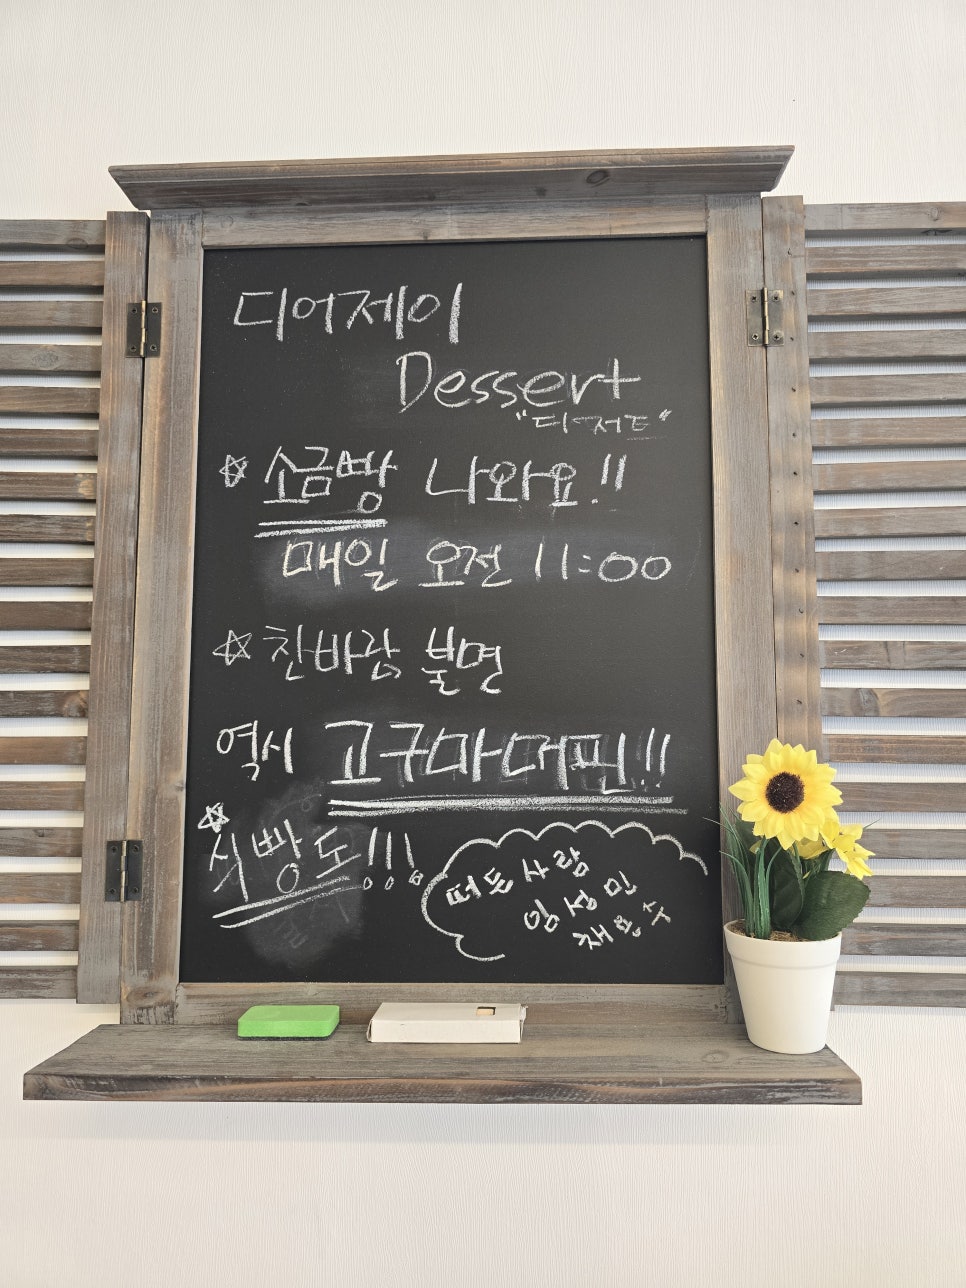 디어제이
Dessert
"디저트"
☆ 소금빵 나와요!!
매일 오전 11:00
☆ 찬바람 불면
역시 고구마 머핀!!!
☆
식빵도!!!
떠든 사람
임성민